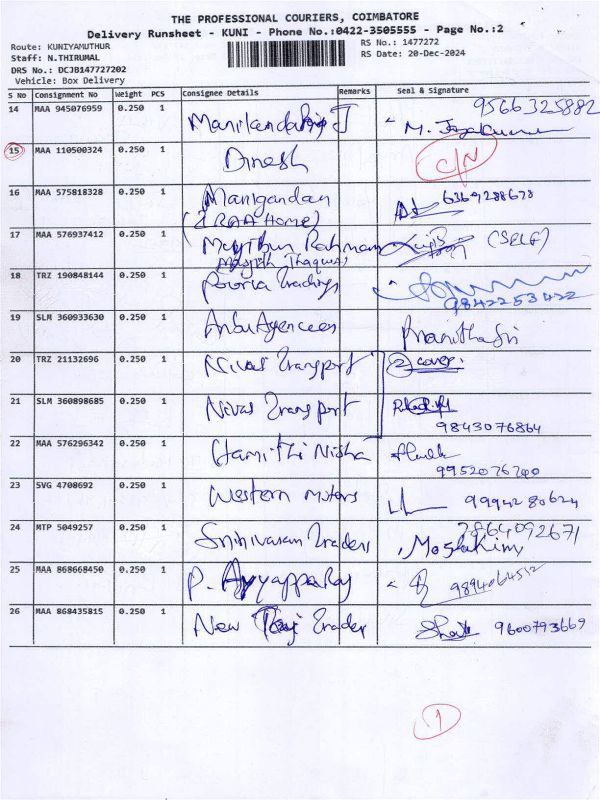 THE PROFESSIONAL COURIERS, COIMBATORE
Delivery Runsheet - KUNI - Phone No.:0422-3505555 - Page No.:2
Route: KUNIYAMUTHUR
RS No.: 1477272
Staff: N.THIRUMAL
RS Date: 20-Dec-2024
DRS No.: DCJB147727202
Vehicle: Box Delivery
S No Consignment No Weight PCS Consignee Details Remarks Seal & Signature
14 MAA 945076959 0.250 1 9566325882
15 MAA 110500324 0.250 1 Dinesh C/N
16 MAA 575818328 0.250 1 Manigandan 6369288678
17 MAA 576937412 0.250 1 Rahman (SELF)
18 TRZ 190848144 0.250 1 9842253422
19 SLM 360933630 0.250 1 Anbu Agencees
20 TRZ 21132696 0.250 1 Nivas Transport 2 cover
21 SLM 360898685 0.250 1 Nivas Transport 9843076864
22 MAA 576296342 0.250 1 Nisha
23 SVG 4708692 0.250 1 Western motors 9994280624
24 MTP 5049257 0.250 1 Srinivasan Traders 7864092671
25 MAA 868668450 0.250 1 P.
26 MAA 868435815 0.250 1 New Trader 9600793669
1